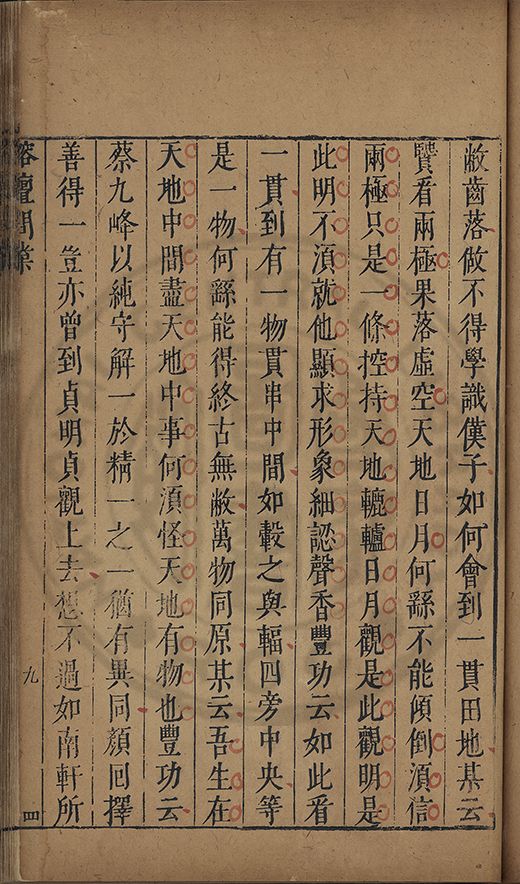 敝齒落做不得學識漢子如何會到一貫田地某云
賢看兩極果落虛空天地日月何繇不能傾倒湏信
兩極只是一條控持天地轆轤日月觀是此觀明是
此明不湏就他顯求形象細認聲香豐功云如此看
一貫到有一物貫串中間如轂之與輻四旁中央等
是一物何繇能得終古無敝萬物同原某云吾生在
天地中間盡天地中事何湏怪天地有物也豐功云
蔡九峰以純守解一於精一之一猶有異同顏回擇
善得一豈亦曾到貞明貞觀上去想不過如南軒所
榕壇問業
九
四